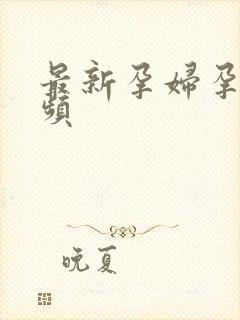 最新孕婦孕
頻
晚夏